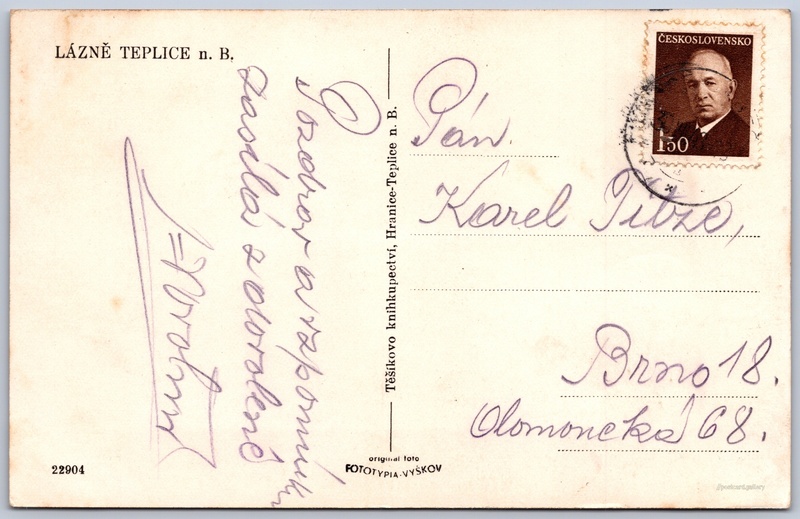 LÁZNĚ TEPLICE n. B.
Pozdrav a vzpomínku
zasílá z dovolené
22904
Těšíkovo knihkupectví, Hranice-Teplice n. B.
original foto
FOTOTYPIA-VYŠKOV
ČESKOSLOVENSKO
1.50
Pán
Karel
Brno 18.
Olomoucká 68.
@postcard.gallery